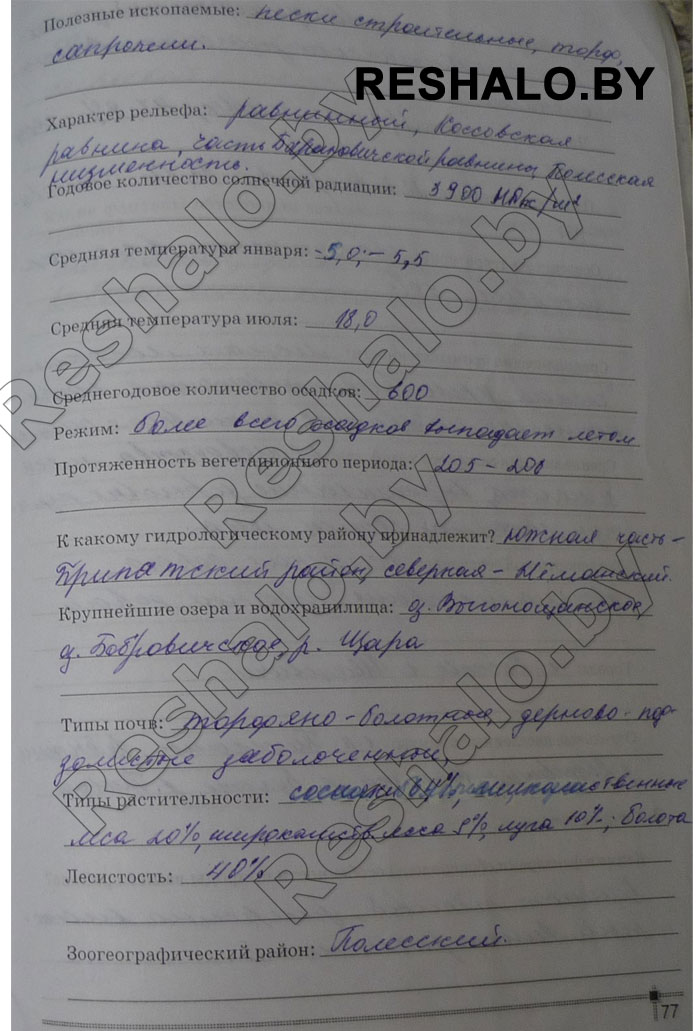 Полезные ископаемые: пески строительные, торф,
сапропели.
RESHALO.BY
Характер рельефа: равнинный, Коссовская
равнина, часть Барановичской равнины, Полесская
низменность.
Годовое количество солнечной радиации: 3900 МДж/м²
Средняя температура января: -5,0; - 5,5
Средняя температура июля: 18,0
Среднегодовое количество осадков: 600
Режим: более всего осадков выпадает летом
Протяженность вегетационного периода: 205 - 208
К какому гидрологическому району принадлежит? южная часть -
Припятский район, северная - Нёманский.
Крупнейшие озера и водохранилища: о. Выгонощанское
о. Бобровичское, р. Щара
Типы почв: торфяно-болотные, дерново-под-
золистые заболоченные,
Типы растительности: сосняки 64%, мелколиственные
леса 20%, широколиств леса 5%, луга 10%; болота
Лесистость: 40%
Зоогеографический район: Полесский.
77
Reshalo.by
Reshalo.by
Reshalo.by
Reshalo.by